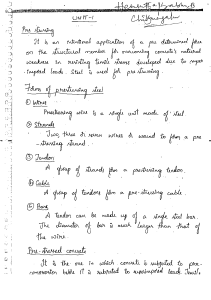 UNIT-1
Pre stressing
It is an intentional application of a pre determined force
on the structural member for overcoming concrete's natural
weakness in resisting tensile stresses developed due to super
imposed loads. Steel is used for pre-stressing.
Forms of prestressing steel
① Wires
Prestressing wire is a single unit made of steel
② Strands
Two, three or seven wires is wound to form a pre-
stressing strand.
③ Tendon
A group of strands form a prestressing tendon.
④ Cable
A group of tendons form a pre-stressing cable.
⑤ Bars
A tendon can be made up of a single steel bar.
The diameter of bar is much larger than that of
the wire.
Pre-stressed concrete
It is the one in which concrete is subjected to pre-
compression before it is subjected to superimposed loads